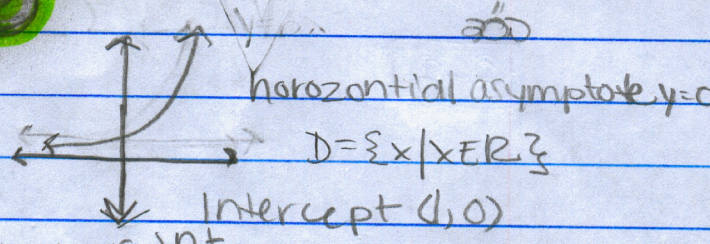 horozontial asymptote y=0
D={x|xER}
Intercept (1,0)